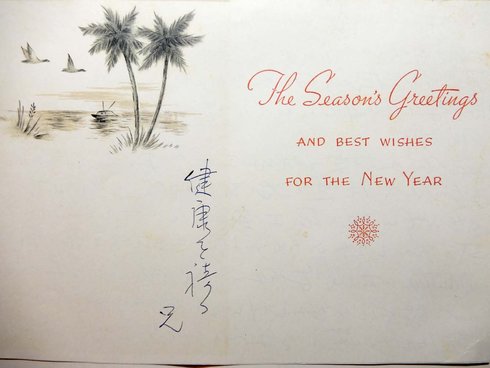 健康を祷る
兄
The Season's Greetings
AND BEST WISHES
FOR THE NEW YEAR